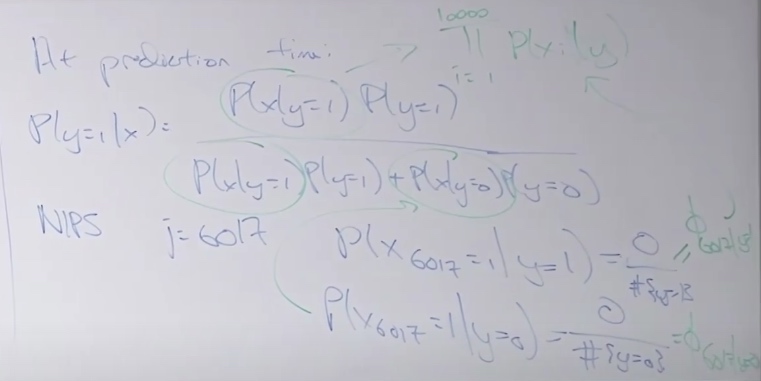 At prediction time: → 10000 ∏ i=1 P(xᵢ|y)
P(y=1|x) = P(x|y=1) P(y=1) / P(x|y=1) P(y=1) + P(x|y=0) P(y=0)
NIPS j=6017 P(x6017=1|y=1) = 0 / #{y=1} = ϕ6017|y=1
P(x6017=1|y=0) = 0 / #{y=0} = ϕ6017|y=0